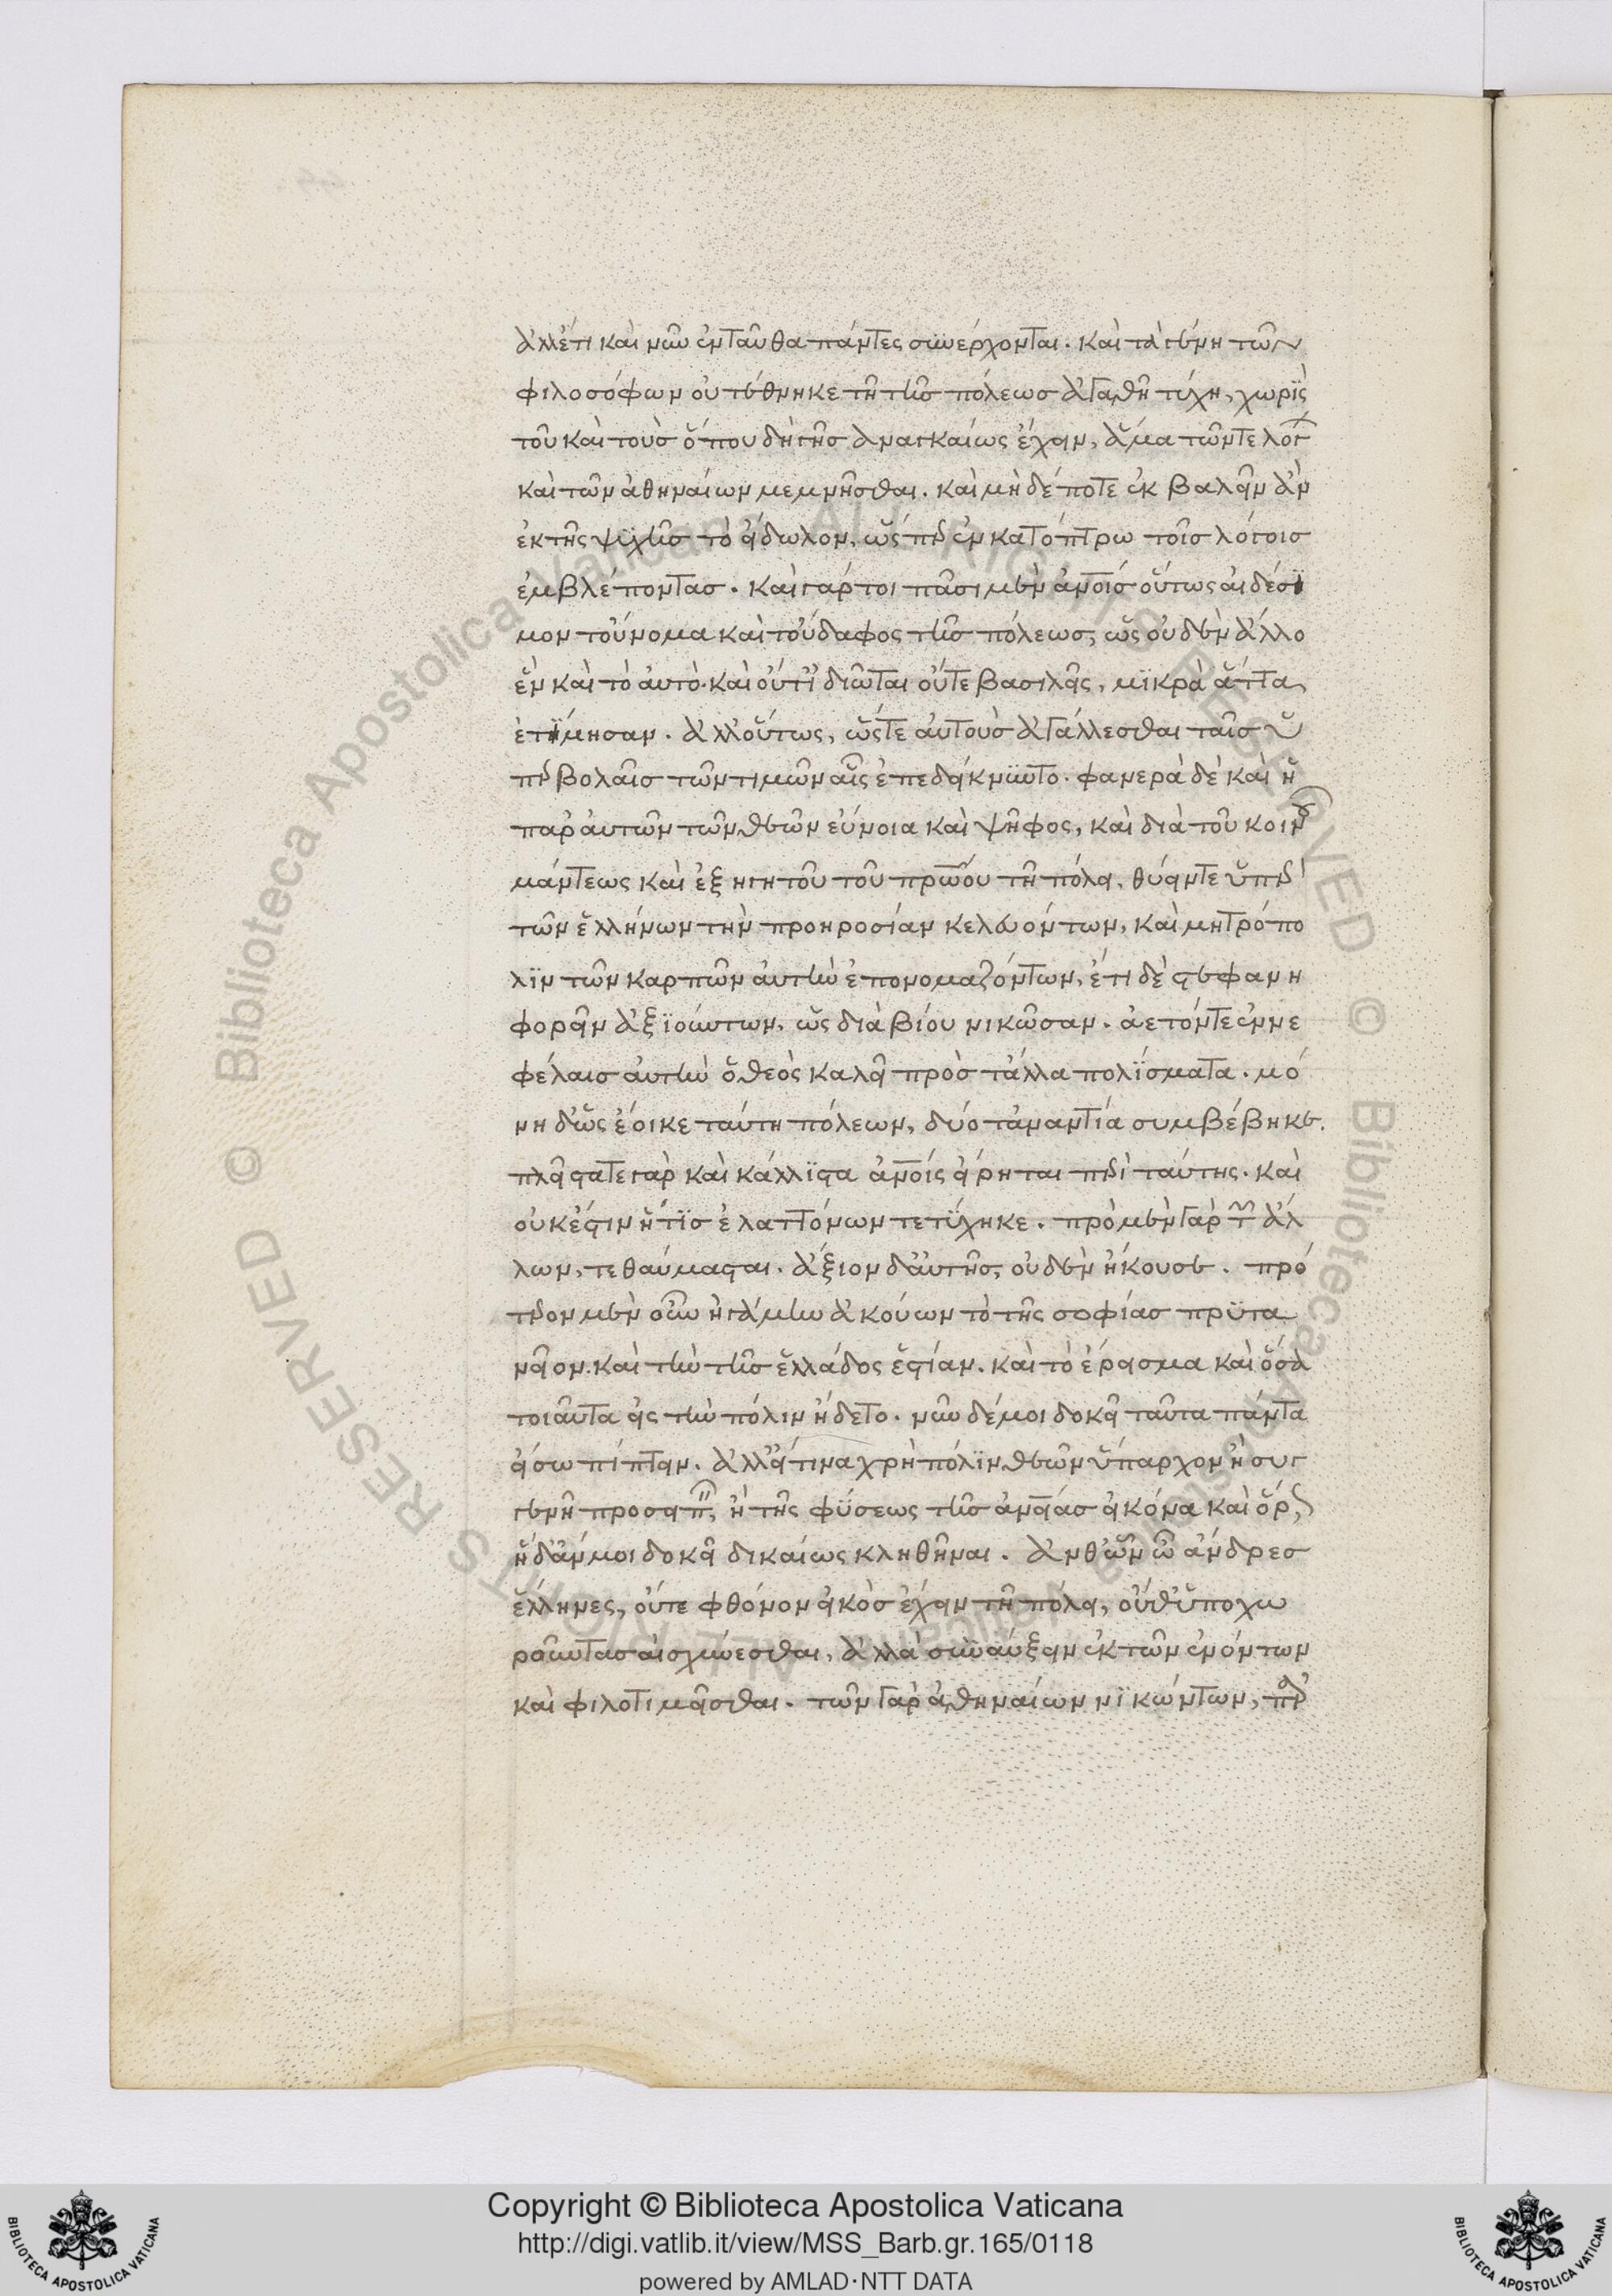 ἀλλ' ἔτι καὶ νῦν ἐνταῦθα πάντες συνέρχονται. καὶ τὰ γένη τῶν
φιλοσόφων οὐ τέθνηκε τῇ τῆς πόλεως ἀγαθῇ τύχῃ, χωρὶς
τοῦ καὶ τοὺς ὅπου δὴ γῆς ἀναγκαίως ἔχειν, ἅμα τῶν τε λόγ
καὶ τῶν ἀθηναίων μεμνῆσθαι. καὶ μὴ δέποτε ἐκβαλεῖν ἂν
ἐκ τῆς ψυχῆς τὸ εἴδωλον, ὥσπερ ἐν κατόπτρω τοῖς λόγοις
ἐμβλέποντας. καὶ γάρ τοι πᾶσι μὲν ἀνοις οὕτως αἰδέσϊ
μον τοὔνομα καὶ τοὔδαφος τῆς πόλεως, ὡς οὐδὲν ἄλλο
ἓν καὶ τὸ αὐτό. καὶ οὔτ' ἰδιῶται οὔτε βασιλεῖς, μϊκρὰ ἄττα
ἐτίμησαν. ἀλλ' οὕτως, ὥστε αὐτοὺς ἀγάλλεσθαι ταῖς ὑ
περβολαῖς τῶν τιμῶν αἷς ἐπεδείκνϋντο. φανερὰ δὲ καὶ ἡ
παρ' αὐτῶν τῶν θεῶν εὔνοια καὶ ψῆφος, καὶ διὰ τοῦ κοινοῦ
μάντεως καὶ ἐξηγητοῦ τοῦ πρώου τῇ πόλει, θύειν τε ὑπὲρ
τῶν ἑλλήνων τὴν προηροσίαν κελευόντων, καὶ μητρόπο
λϊν τῶν καρπῶν αὐτὴν ἐπονομαζόντων, ἔτι δὲ στεφανη
φορεῖν ἀξϊούντων, ὡς διὰ βίου νικῶσαν. ἀετόν τε ἐν νε
φέλαις αὐτὴν ὁ θεὸς καλεῖ πρὸς τἆλλα πολΐσματα. μό
νη δ' ὡς ἔοικε ταύτη πόλεων, δύο τἀναντία συμβέβηκε.
πλεῖστα τε γὰρ καὶ κάλλϊστα ἀνοις εἴρηται περὶ ταύτης. καὶ
οὐκ ἔστιν ἥτϊς ἐλαττόνων τετύχηκε. πρὸ μὲν γὰρ τῶν ἄλ
λων, τεθαύμασται. ἄξιον δ' αὐτῆς, οὐδὲν ἤκουσε. πρό
τερον μὲν οὖν ἠγάμην ἀκούων τὸ τῆς σοφίας πρϋτα
νεῖον. καὶ τὴν τῆς ἑλλάδος ἑστίαν. καὶ τὸ ἔρεισμα καὶ ὅσα
τοιαῦτα εἰς τὴν πόλιν ᾔδετο. νῦν δέ μοι δοκεῖ ταῦτα πάντα
εἴσω πίπτειν. ἀλλ' εἴ τινα χρὴ πόλϊν θεῶν ὕπαρχον ἢ συγ
γενῆ προσειπεῖν, ἢ τῆς φΰσεως τῆς ἀνείας εἰκόνα καὶ ὅρον
ἥδ' ἄν μοι δοκεῖ δικαίως κληθῆναι. ἀνθ' ὧν ὦ ἄνδρες
ἕλληνες, οὔτε φθόνον εἰκὸς ἔχειν τῇ πόλει, οὔθ' ὑποχω
ροῦντας αἰσχύνεσθαι, ἀλλὰ συναύξειν ἐκ τῶν ἐνόντων
καὶ φιλοτιμεῖσθαι. τῶν γὰρ ἀθηναίων νϊκώντων, παρ'
Copyright © Biblioteca Apostolica Vaticana
http://digi.vatlib.it/view/MSS_Barb.gr.165/0118
powered by AMLAD·NTT DATA